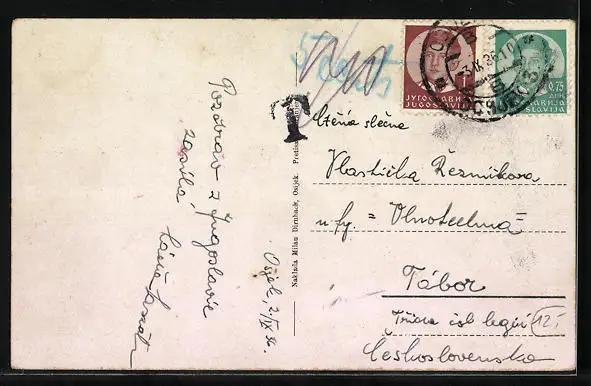 Pozdrav z Jugoslavie
zasílá
Osijek, 2./IX 36.
Naklada Milan Birnbach, Osijek.
T
1
ЈУГОСЛАВИЈА
JUGOSLAVIJA
0,75
JUGOSLAVIJA
Ctěná slečna
Vlastička Řezníkova
u fy. = Vlnotextma =
Tábor
Třída čsl legií (12)
Československo